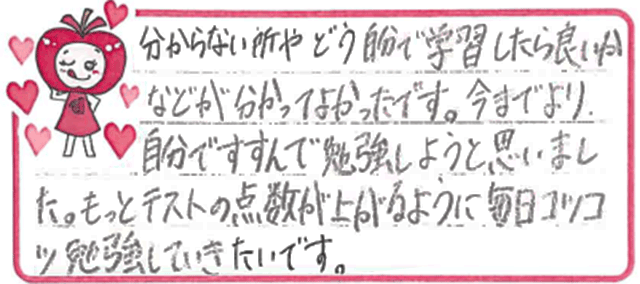 分からない所や どう自分で学習したら良いか
などが分かってよかったです。今までより、
自分ですすんで勉強しようと思いまし
た。もっとテストの点数が上がるように毎日コツコ
ツ勉強していきたいです。